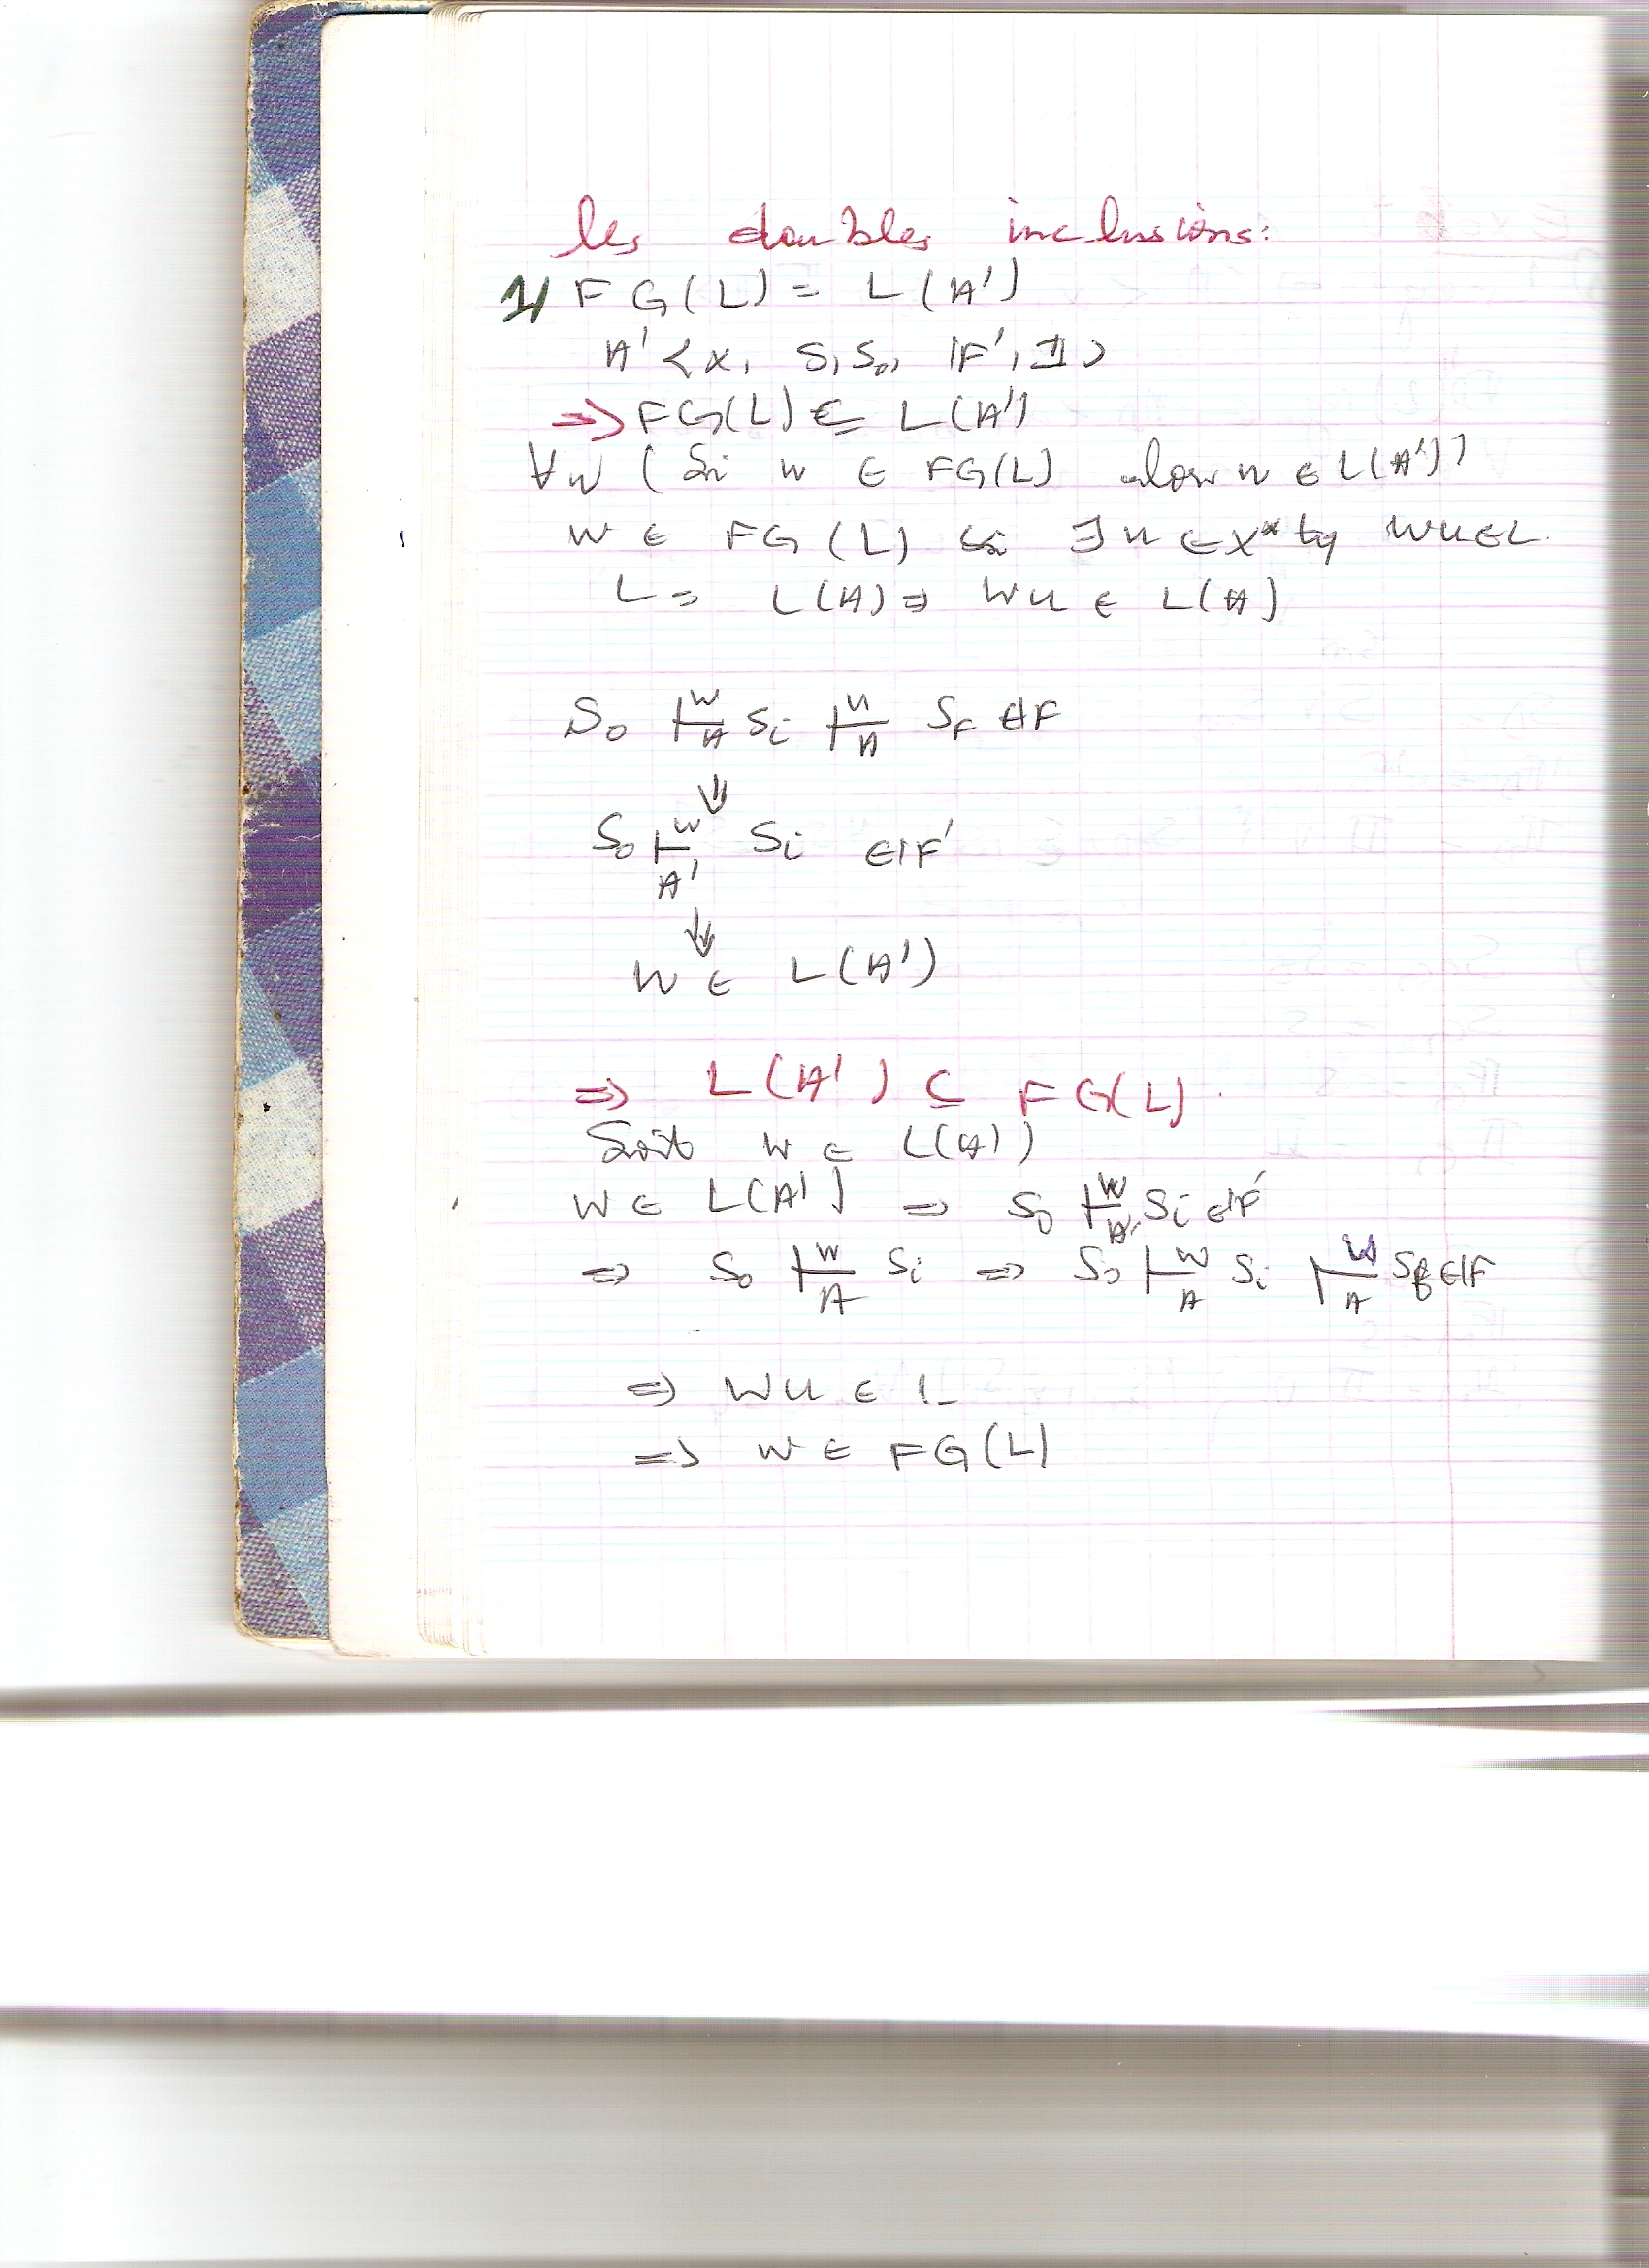 les doubles inclusions:
1/ FG(L) = L(A')
A' <X, S, S₀, IF', II>
=> FG(L) ⊆ L(A')
∀w (Si w ∈ FG(L) alors w ∈ L(A'))
w ∈ FG(L) ssi ∃u ∈ X* tq wu ∈ L.
L = L(A) => wu ∈ L(A)
S₀ |w/A Si |u/A SF ∈ IF
⇓
S₀ |w/A' Si ∈ IF'
⇓
w ∈ L(A')
=> L(A') ⊆ FG(L)
Soit w ∈ L(A')
w ∈ L(A') => S₀ |w/A' Si ∈ IF'
=> S₀ |w/A Si => S₀ |w/A Si |w/A Sf ∈ IF
=> wu ∈ L
=> w ∈ FG(L)